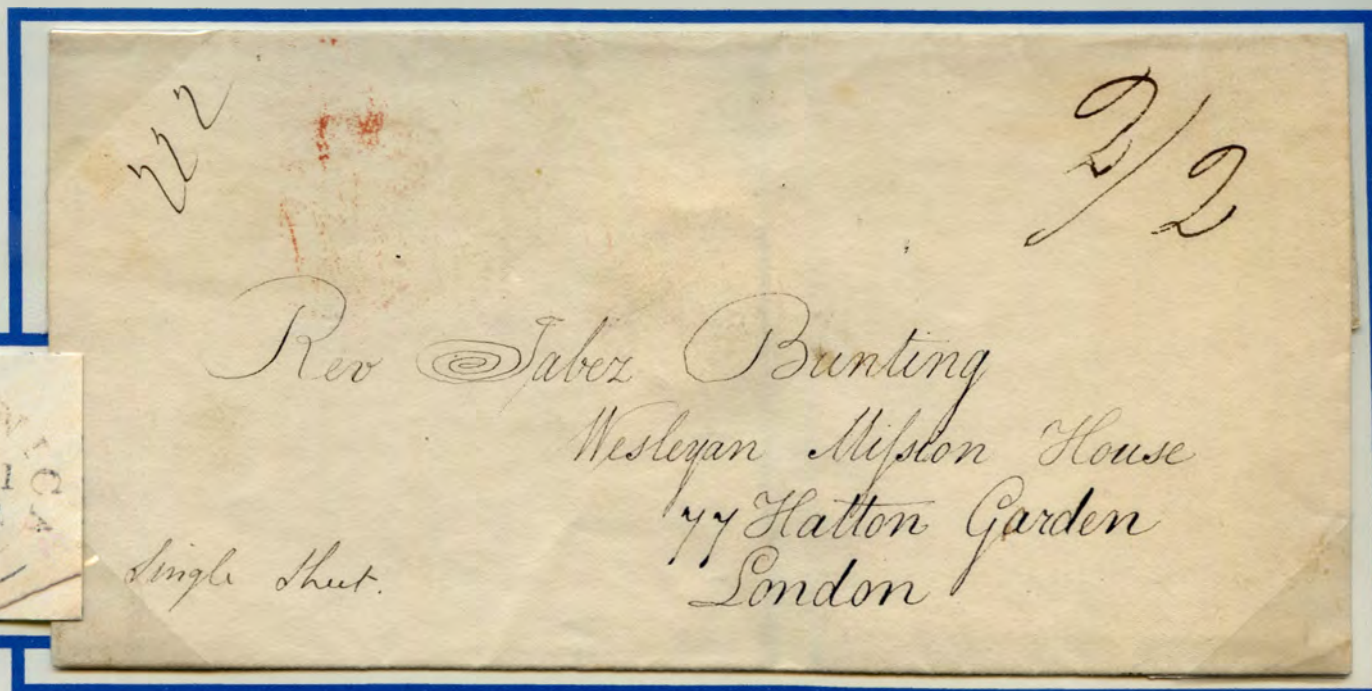 222
2/2
Rev Jabez Bunting
Wesleyan Miſsion House
77 Hatton Garden
London
Single Sheet.